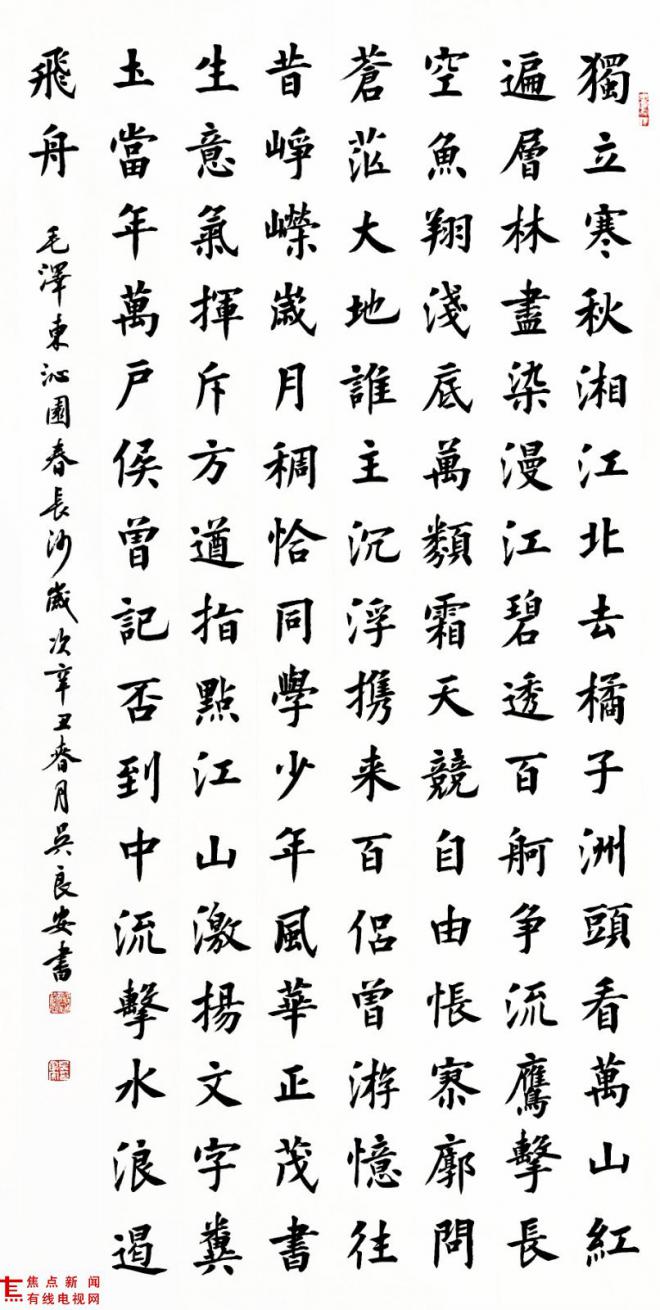 獨立寒秋湘江北去橘子洲頭看萬山紅
遍層林盡染漫江碧透百舸争流鷹擊長
空魚翔淺底萬類霜天競自由悵寥廓問
蒼茫大地誰主沉浮携来百侣曾游憶往
昔崢嶸歲月稠恰同學少年風華正茂書
生意氣揮斥方遒指點江山激揚文字糞
土當年萬户侯曾記否到中流擊水浪遏
飛舟
毛澤東沁園春長沙歲次辛丑春月吳良安書
焦点新闻
有线电视网